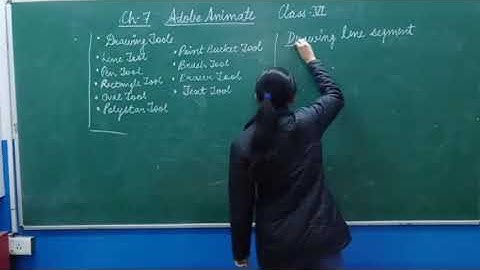 Ch-7 Adobe Animate Class-VI
• Drawing Tools
• Line Tool
• Pen Tool
• Rectangle Tool
• Oval Tool
• Polystar Tool
• Paint Bucket Tool
• Brush Tool
• Eraser Tool
• Text Tool
Drawing line segment